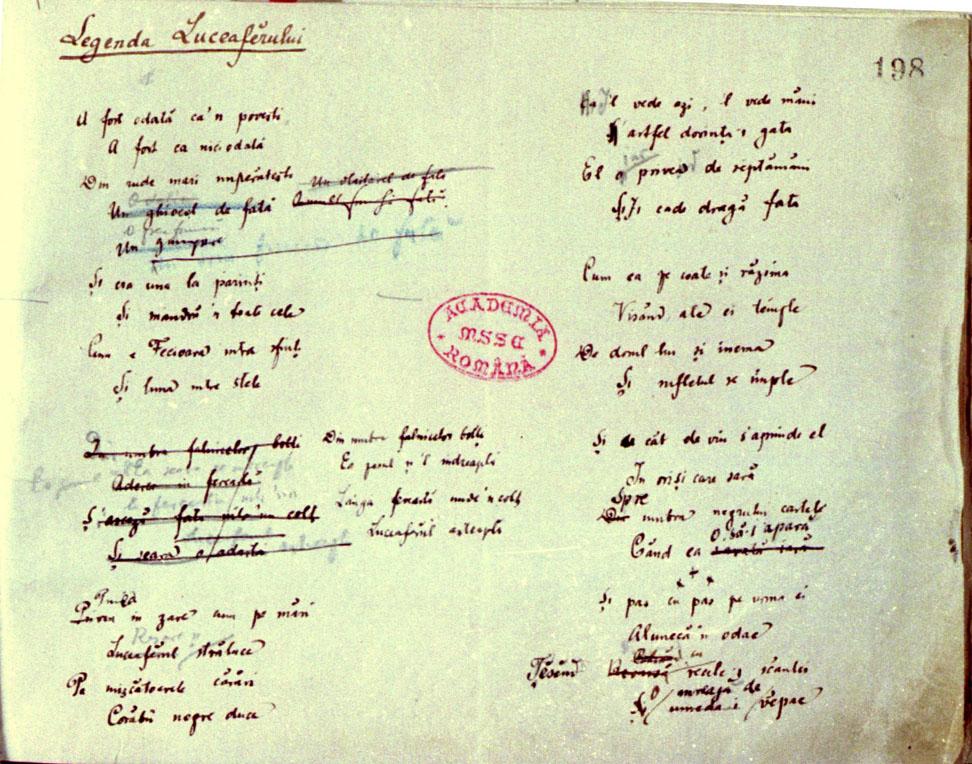 Legenda Luceafĕrului
198
A fost odată ca'n povești
A fost ca nici odată
Din rude mari împărătești
Un ghiocel de fată
Un
Și era una la parinți
Și mândră 'n toate cele
Cum e Fecioara intra sfinți
Și luna intre stele
Din umbra falnicelor bolți
Adese in fereastă
Și seara o adastă
Din umbra falnicelor bolți
Ea pasul și 'l indreaptă
Langa fereastă unde 'n colț
Luceafĕrul asteaptă
Privea in zare cum pe mări
Luceafĕrul străluce
Pe mișcătoarele cărări
Corăbii negre duce
ACADEMIA
MSSE
ROMÂNĂ
Il vede azi, 'l vede mâni
Ș'astfel dorința-i gata
El privea de septămâni
Și-i cade dragă fata
Cum ea pe coate și răzima
Visând ale ei tâmple
De dorul lui și inema
Și sufletul se împle
Și cât de viu s'aprinde el
In oriși care sară
Spre umbra negrului castel
Când ea o să-i apară
Și pas cu pas pe urma ei
Alunecă 'n odae
Țesênd cu recele-i scântei
O mreajă de văpae